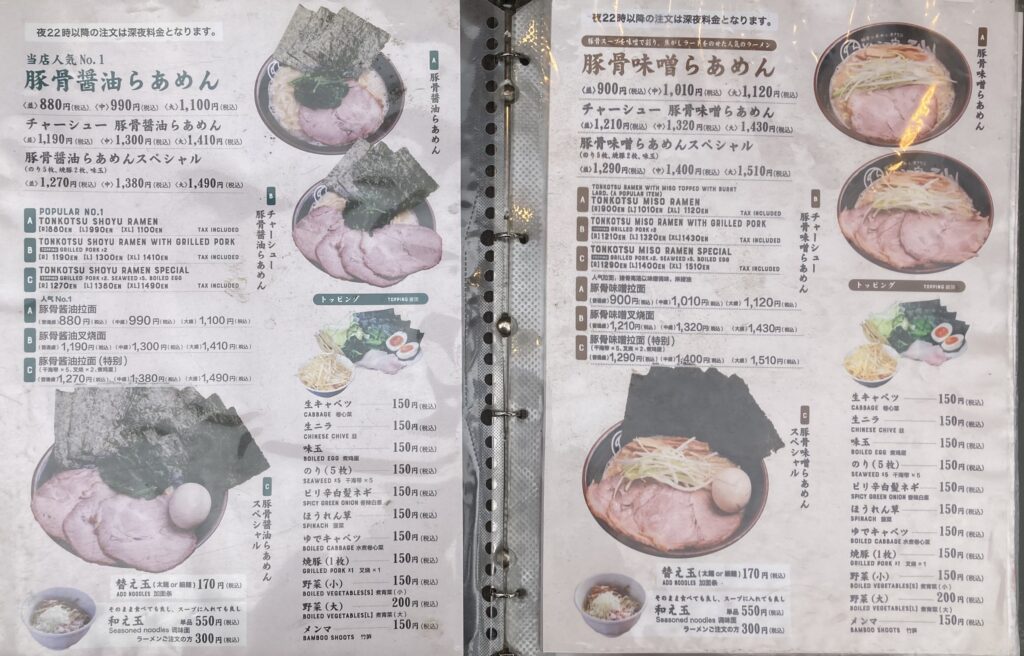 夜22時以降の注文は深夜料金となります。
当店人気No.1
豚骨醤油らあめん
〈並〉880円(税込)〈中〉990円(税込)〈大〉1,100円(税込)
チャーシュー 豚骨醤油らあめん
〈並〉1,190円(税込)〈中〉1,300円(税込)〈大〉1,410円(税込)
豚骨醤油らあめんスペシャル
(のり5枚、焼豚2枚、味玉)
〈並〉1,270円(税込)〈中〉1,380円(税込)〈大〉1,490円(税込)
A 豚骨醤油らあめん
B チャーシュー
豚骨醤油らあめん
POPULAR NO.1
A TONKOTSU SHOYU RAMEN
[R]880EN [L]990EN [XL]1100EN TAX INCLUDED
B TONKOTSU SHOYU RAMEN WITH GRILLED PORK
TOPPING GRILLED PORK×2
[R]1190EN [L]1300EN [XL]1410EN TAX INCLUDED
C TONKOTSU SHOYU RAMEN SPECIAL
TOPPING GRILLED PORK×2, SEAWEED×5, BOILED EGG
[R]1270EN [L]1380EN [XL]1490EN TAX INCLUDED
人气No.1
A 豚骨酱油拉面
(普通碗)880円(税込)(中碗)990円(税込)(大碗)1,100円(税込)
B 豚骨酱油叉烧面
(普通碗)1,190円(税込)(中碗)1,300円(税込)(大碗)1,410円(税込)
C 豚骨酱油拉面(特别)
(干海带×5、叉烧×2、煮鸡蛋)
(普通碗)1,270円(税込)(中碗)1,380円(税込)(大碗)1,490円(税込)
トッピング TOPPING
C 豚骨醤油らあめん
スペシャル
生キャベツ 150円(税込)
CABBAGE 卷心菜
生ニラ 150円(税込)
CHINESE CHIVE 韭
味玉 150円(税込)
BOILED EGG 煮鸡蛋
のり(5枚) 150円(税込)
SEAWEED×5 干海带×5
ピリ辛白髪ネギ 150円(税込)
SPICY GREEN ONION 香辣白葱
ほうれん草 150円(税込)
SPINACH 菠菜
ゆでキャベツ 150円(税込)
BOILED CABBAGE 水煮卷心菜
焼豚(1枚) 150円(税込)
GRILLED PORK×1 叉烧×1
野菜(小) 150円(税込)
BOILED VEGETABLES[S] 煮青菜(小)
野菜(大) 200円(税込)
BOILED VEGETABLES[L] 煮青菜(大)
メンマ 150円(税込)
BAMBOO SHOOTS 竹笋
替え玉(太麺or細麺)170円(税込)
ADD NOODLES 加面条
そのまま食べても良し、スープに入れても良し
和え玉 単品550円(税込)
Seasoned noodles 调味面
ラーメンご注文の方 300円(税込)
夜22時以降の注文は深夜料金となります。
豚骨スープを味噌で割り、焦がしラードをのせた人気のラーメン
豚骨味噌らあめん
〈並〉900円(税込)〈中〉1,010円(税込)〈大〉1,120円(税込)
チャーシュー 豚骨味噌らあめん
〈並〉1,210円(税込)〈中〉1,320円(税込)〈大〉1,430円(税込)
豚骨味噌らあめんスペシャル
(のり5枚、焼豚2枚、味玉)
〈並〉1,290円(税込)〈中〉1,400円(税込)〈大〉1,510円(税込)
A 豚骨味噌らあめん
B チャーシュー
豚骨味噌らあめん
TONKOTSU RAMEN WITH MISO TOPPED WITH BURNT
LARD. (A POPULAR ITEM)
A TONKOTSU MISO RAMEN
[R]900EN [L]1010EN [XL]1120EN TAX INCLUDED
B TONKOTSU MISO RAMEN WITH GRILLED PORK
TOPPING GRILLED PORK×2
[R]1210EN [L]1320EN [XL]1430EN TAX INCLUDED
C TONKOTSU MISO RAMEN SPECIAL
TOPPING GRILLED PORK×2, SEAWEED×5, BOILED EGG
[R]1290EN [L]1400EN [XL]1510EN TAX INCLUDED
A 豚骨味噌拉面
(普通碗)900円(税込)(中碗)1,010円(税込)(大碗)1,120円(税込)
B 豚骨味噌叉烧面
(普通碗)1,210円(税込)(中碗)1,320円(税込)(大碗)1,430円(税込)
C 豚骨味噌拉面(特别)
(干海带×5、叉烧×2、煮鸡蛋)
(普通碗)1,290円(税込)(中碗)1,400円(税込)(大碗)1,510円(税込)
トッピング TOPPING
C 豚骨味噌らあめん
スペシャル
生キャベツ 150円(税込)
CABBAGE 卷心菜
生ニラ 150円(税込)
CHINESE CHIVE 韭
味玉 150円(税込)
BOILED EGG 煮鸡蛋
のり(5枚) 150円(税込)
SEAWEED×5 干海带×5
ピリ辛白髪ネギ 150円(税込)
SPICY GREEN ONION 香辣白葱
ほうれん草 150円(税込)
SPINACH 菠菜
ゆでキャベツ 150円(税込)
BOILED CABBAGE 水煮卷心菜
焼豚(1枚) 150円(税込)
GRILLED PORK×1 叉烧×1
野菜(小) 150円(税込)
BOILED VEGETABLES[S] 煮青菜(小)
野菜(大) 200円(税込)
BOILED VEGETABLES[L] 煮青菜(大)
メンマ 150円(税込)
BAMBOO SHOOTS 竹笋
替え玉(太麺or細麺)170円(税込)
ADD NOODLES 加面条
そのまま食べても良し、スープに入れても良し
和え玉 単品550円(税込)
Seasoned noodles 调味面
ラーメンご注文の方 300円(税込)